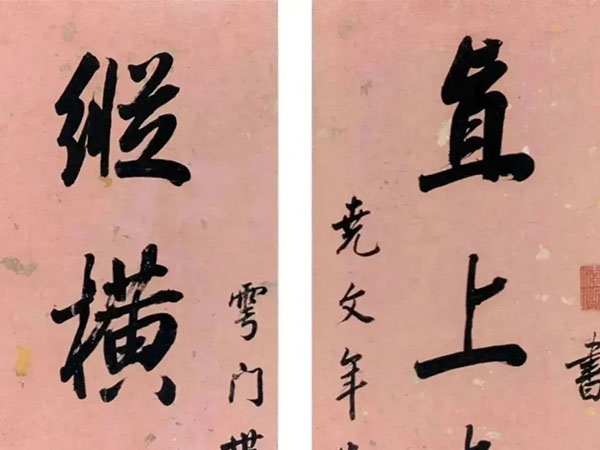 書
直上
尭文年
雩门
縱橫